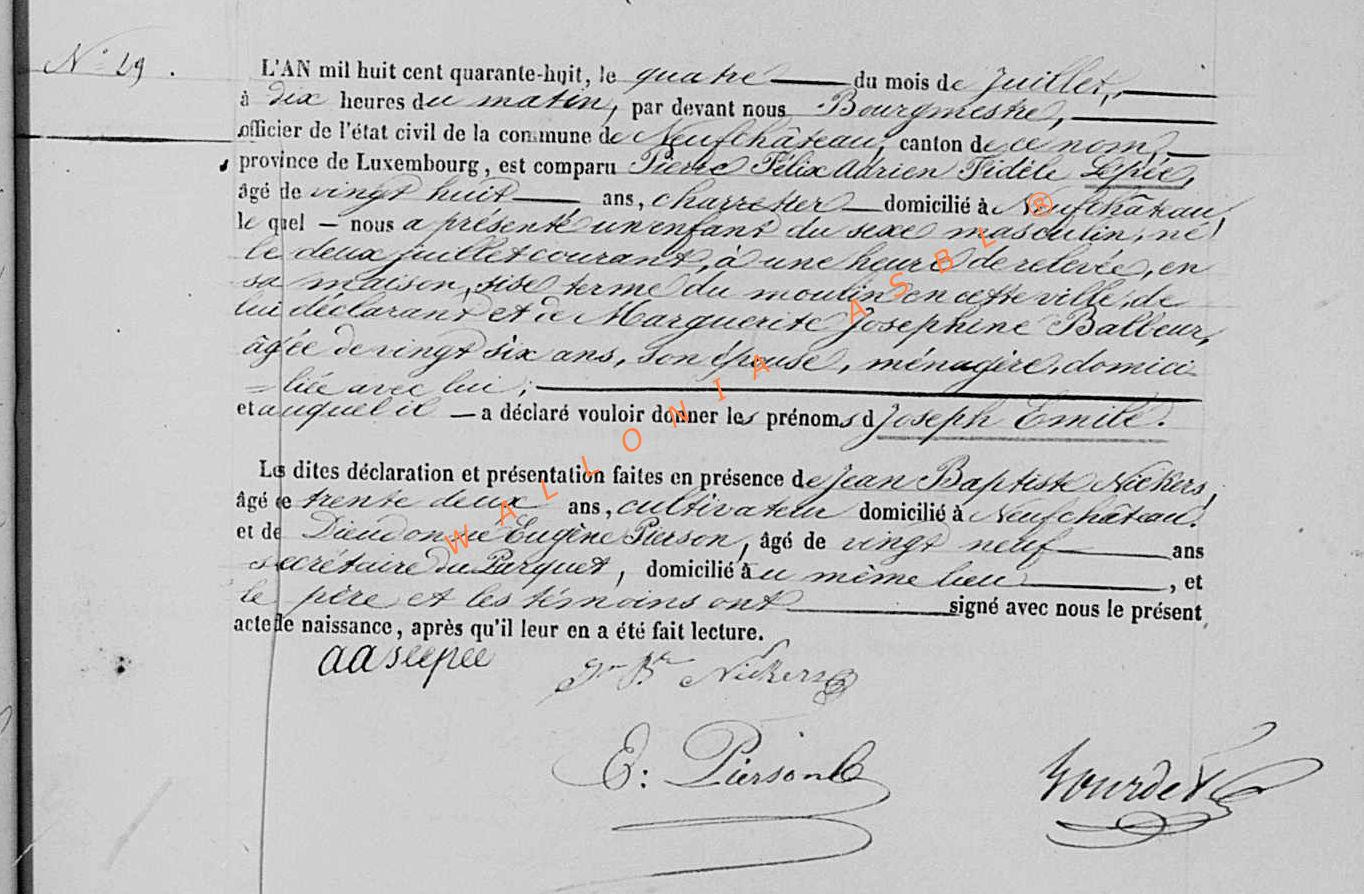 N° 29.
L'AN mil huit cent quarante-huit, le quatre du mois de Juillet,
à dix heures du matin, par devant nous Bourgmestre,
officier de l'état civil de la commune de Neufchâteau, canton de ce nom,
province de Luxembourg, est comparu Pierre Félix Adrien Fidèle Lepée,
âgé de vingt huit ans, charretier domicilié à Neufchâteau,
le quel — nous a présenté un enfant du sexe masculin, né
le deux juillet courant, à une heure de relevée, en
sa maison, sise terme du moulin en cette ville, de
lui déclarant et de Marguerite Josephine Balbeur,
âgée de vingt six ans, son épouse, ménagère, domici
= liée avec lui;
et auquel il — a déclaré vouloir donner les prénoms d Joseph Emile.
Les dites déclaration et présentation faites en présence de Jean Baptiste Nickers,
âgé de trente deux ans, cultivateur domicilié à Neufchâteau.
et de Dieudonné Eugène Pierson, âgé de vingt neuf ans
secrétaire du Parquet, domicilié au même lieu, et
le père et les témoins ont signé avec nous le présent
acte de naissance, après qu'il leur en a été fait lecture.
Jn Bte Nickers
E: Pierson
WALLONIA ASBL ®